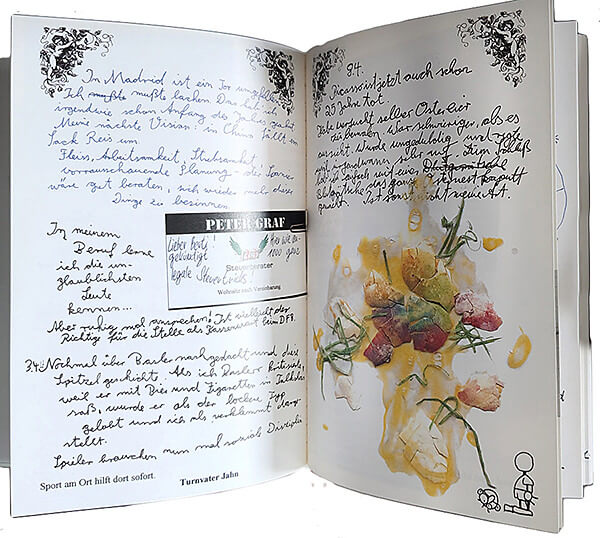 In Madrid ist ein Tor umgefallen.
Ich mußte mußte lachen. Das hab ich
irgendwie schon Anfang des Jahres gesehen
Meine nächste Vision: in China fällt ein
Sack Reis um.
Fleiss, Arbeitsamkeit, Strebsamkeit,
vorrauschauende Planung - der
wäre gut beraten, sich wieder mehr dieser
Dinge zu besinnen.
In meinem
Beruf lerne
ich die un-
glaublichsten
Leute
kennen...
PETER GRAF
Lieber Berti,
gebürtigt
legale Steuertricks!
Hier wie du
1000 ganz
Steuerberater
Wohnsitz nach Vereinbarung
Aber ruhig mal ansprechen! Ist vielleicht der
Richtige für die Stelle als Kassenwart beim DFB.
34: Nochmal über Basler nachgedacht und diese
Spitzelgeschichte. Als ich Basler kritisierte,
weil er mit Bier und Zigaretten in Talkshow
saß, wurde er als der lockere Typ
gelobt und ich als verklemmt darge-
stellt.
Spieler brauchen nun mal soziale Disziplin
Sport am Ort hilft dort sofort.
Turnvater Jahn
84.
Picasso ist jetzt auch schon
25 Jahre tot.
Habe versucht selber Ostereier
zu bemalen. War schwieriger, als es
aussieht. Wurde ungeduldig und
irgendwann sehr wütig. Zum Schluß
das ganze Nest kaputt
gemacht. Ist sonst nicht meine Art.